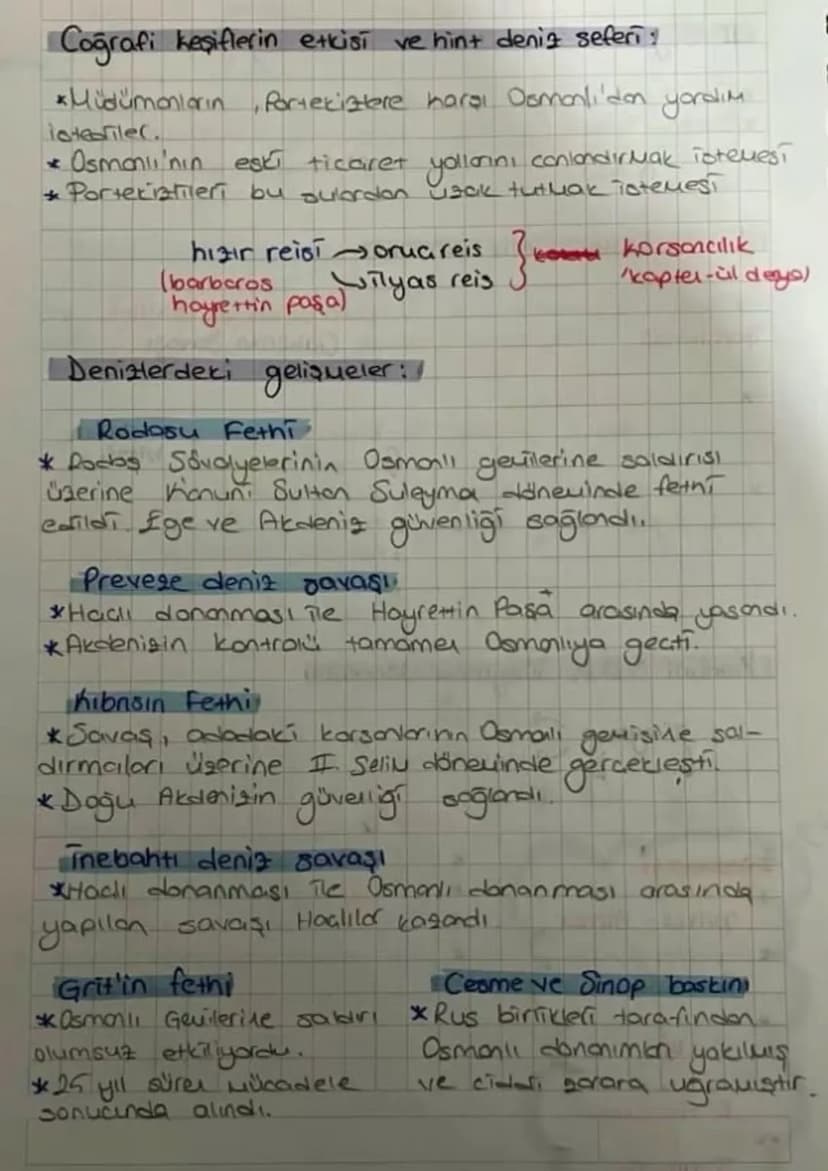 Coğrafi keşiflerin etkisi ve hint deniz seferi:
*Müdümanların, Portekizlere karşı Osmanlı'dan yardım
istediler.
* Osmanlı'nın eski ticaret yollarını canlandırmak istemesi
* Portekizlileri bu sulardan uzak tutmak istemesi
hızır reisi → oruç reis } korsancılık
(barbaros ↘ ilyas reis /kapten-ül derya)
hayrettin paşa)
Denizlerdeki gelişmeler:
Rodosu Fethi
* Rodos Şövalyelerinin Osmanlı gemilerine saldırısı
üzerine Kanuni Sultan Suleyman döneminde fethi
edildi. Ege ve Akdeniz güvenliği sağlandı.
Preveze deniz savaşı
*Haclı donanması ile Hayrettin Paşa arasında yasandı.
*Akdenizin kontrolü tamamen Osmanlıya gecti.
Kıbrısın Fethi
*Savaş, adadaki korsanlarının Osmanlı gemisine sal-
dırmaları üzerine II. Selim döneminde gerçekleşti.
*Doğu Akdenizin güvenliği sağlandı.
İnebahtı deniz savaşı
*Haclı donanması ile Osmanlı donanması arasında
yapılan savaşı Haclılar kazandı
Grit'in fethi
*Osmanlı Gemilerine saldırı
olumsuz etkiliyordu.
*25 yıl süren mücadele
sonucunda alındı.
Cesme ve Sinop baskını
*Rus birlikleri tarafından
Osmanlı donanımları yakılmış
ve ciddi zarara uğramıştır.